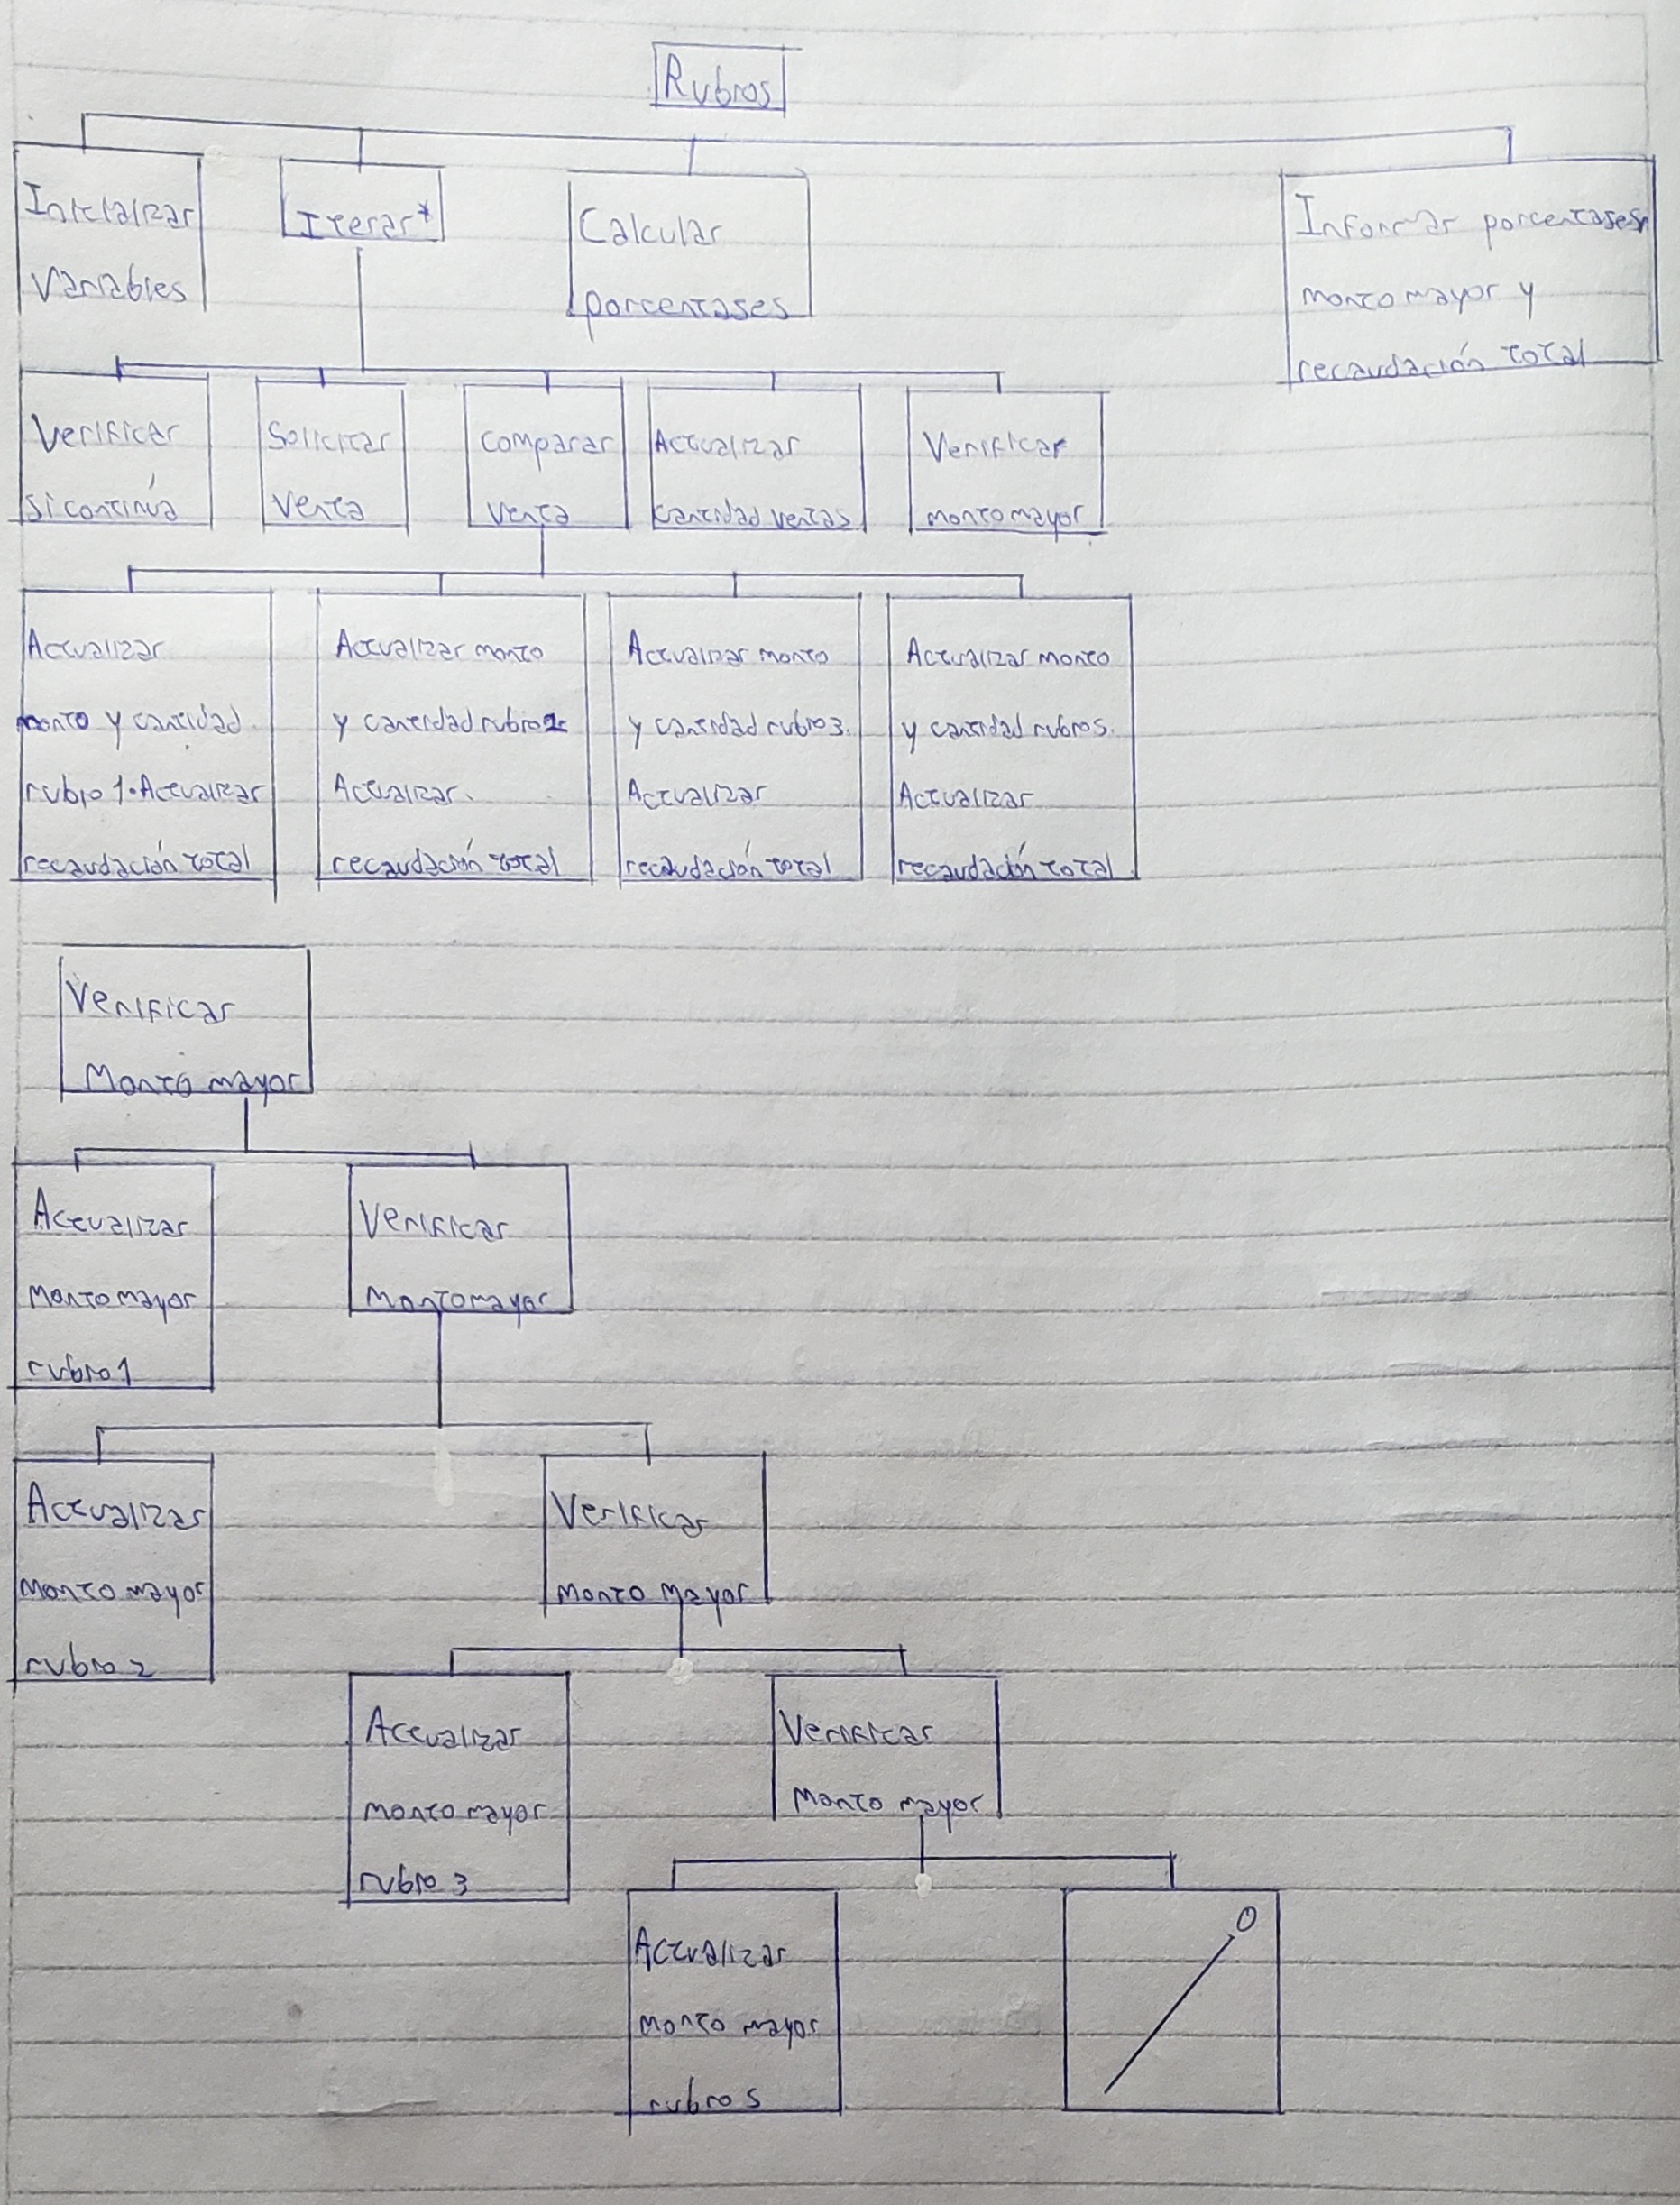 Rubros
Inicializar
Variables
Iterar*
Calcular
porcentajes
Informar porcentajes,
monto mayor y
recaudación total
Verificar
si continúa
Solicitar
venta
Comparar
venta
Actualizar
cantidad ventas
Verificar
monto mayor
Actualizar
monto y cantidad
rubro 1. Actualizar
recaudación total
Actualizar monto
y cantidad rubro 2.
Actualizar
recaudación total
Actualizar monto
y cantidad rubro 3.
Actualizar
recaudación total
Actualizar monto
y cantidad rubro 5.
Actualizar
recaudación total
Verificar
Monto mayor
Actualizar
Monto mayor
rubro 1
Verificar
Monto mayor
Actualizar
Monto mayor
rubro 2
Verificar
Monto Mayor
Actualizar
monto mayor
rubro 3
Verificar
Monto mayor
Actualizar
monto mayor
rubro 5
O